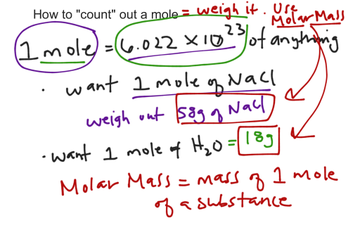 How to "count" out a mole = weigh it. Use
Molar Mass
1 mole = 6.022 × 10²³ of anything
· want 1 mole of NaCl
weigh out 58g of NaCl
· want 1 mole of H₂O = 18g
Molar Mass = mass of 1 mole
of a substance